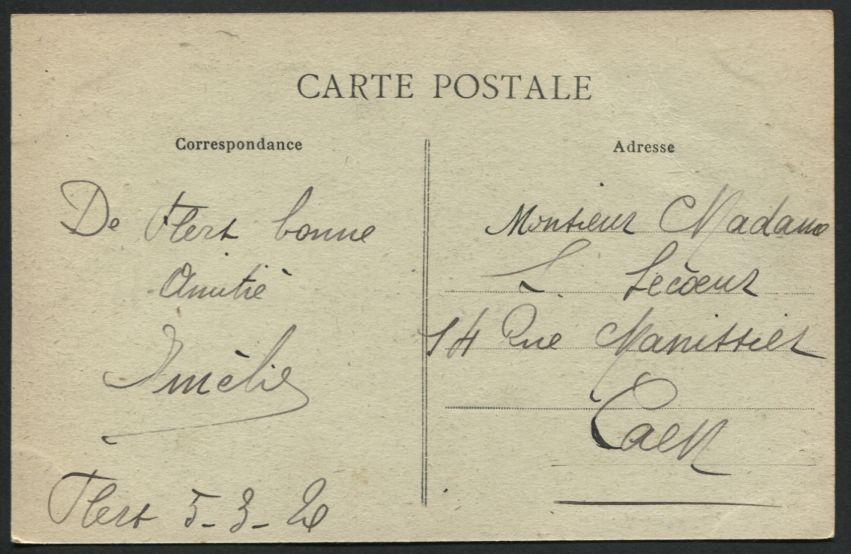 CARTE POSTALE
Correspondance
De Flers bonne
Amitié
Amélie
Flers 5-3-20
Adresse
Monsieur Madame
L. Lecœur
14 Rue Manissier
Caen